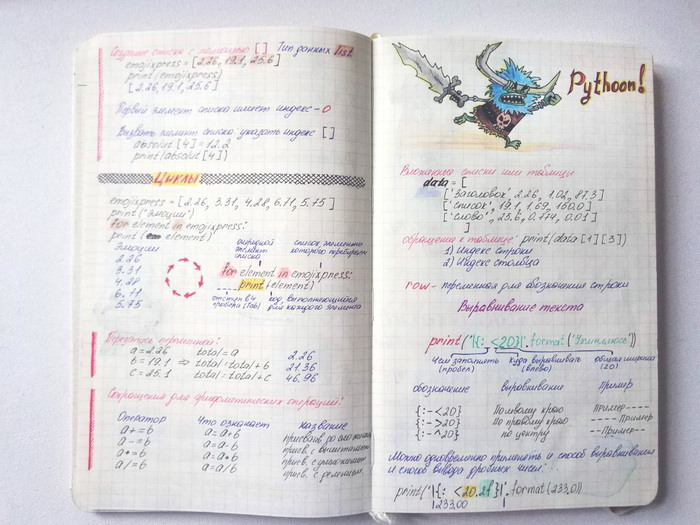 Создание списка с помощью [ ] Тип данных list
emojixpress = [2.26, 19.1, 25.6]
print(emojixpress)
[2.26, 19.1, 25.6]
Первый элемент списка имеет индекс - 0
Вызвать элемент списка указать индекс [ ]
absolut [4] = 12.2
print(absolut [4])
Циклы
emojixpress = [2.26, 3.31, 4.28, 6.11, 5.75]
print('Эмоции')
for element in emojixpress:
print( element)
Эмоции
2.26
3.31
4.28
6.11
5.75
очередной элемент списка
список, элементы которого перебираем
for element in emojixpress:
print(element)
отступ в 4 пробела (Tab)
код, выполняющийся для каждого элемента
Перезапись переменной:
a = 2.26 total = a 2.26
b = 19.1 ⇒ total = total + b 21.36
c = 25.1 total = total + c 46.96
Сокращения для арифметических операций:
Оператор Что означает название
a += b a = a + b присваив. со сложением
a -= b a = a - b присв. с вычитанием
a *= b a = a * b присв. с умножением
a /= b a = a/b присв. с делением
Pythoon!
Вложенные списки или таблицы
data = [
['Заголовок', 2.26, 1.02, 81.3]
['список', 19.1, 1.69, 150.0]
['слово', 25.6, 0.774, 0.01]
]
обращение к таблице print(data [1] [3])
1) Индекс строки
2) Индекс столбца
row - переменная для обозначения строки
Выравнивание текста
print('|{: <20}|'.format('Уместилось'))
Чем заполнять (пробел)
куда выравнивать (влево)
общая ширина (20)
обозначение выравнивание Пример
{:-<20} По левому краю Пример----
{:->20} По правому краю ----Пример
{:-^20} по центру --Пример--
Можно одновременно применять и способ выравнивания
и способ вывода дробных чисел:
print('|{: <20.2f}|'.format(233.0))